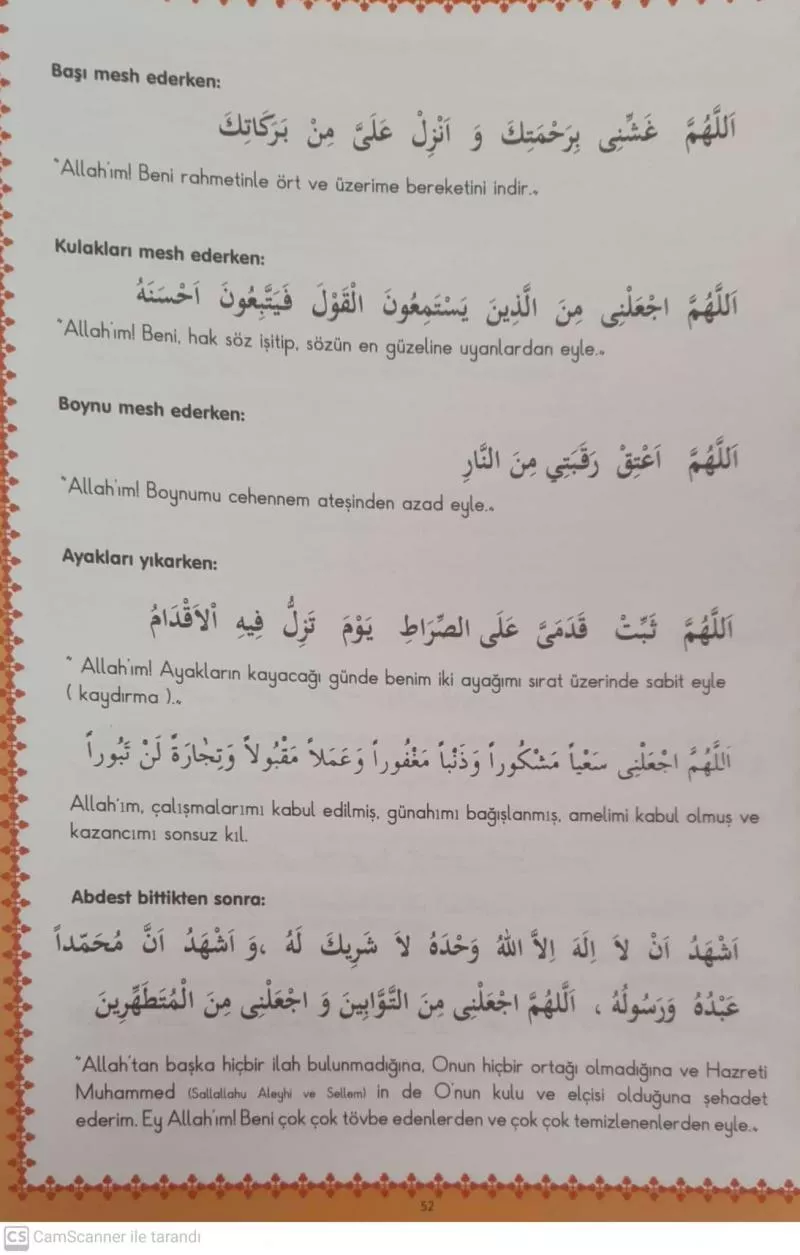 Başı mesh ederken:
اَللَّهُمَّ غَشِّنِى بِرَحْمَتِكَ وَ اَنْزِلْ عَلَىَّ مِنْ بَرَكَاتِكَ
"Allah'ım! Beni rahmetinle ört ve üzerime bereketini indir.„
Kulakları mesh ederken:
اَللَّهُمَّ اجْعَلْنِى مِنَ الَّذِينَ يَسْتَمِعُونَ الْقَوْلَ فَيَتَّبِعُونَ اَحْسَنَهُ
"Allah'ım! Beni, hak söz işitip, sözün en güzeline uyanlardan eyle.„
Boynu mesh ederken:
اَللَّهُمَّ اَعْتِقْ رَقَبَتِي مِنَ النَّارِ
"Allah'ım! Boynumu cehennem ateşinden azad eyle.„
Ayakları yıkarken:
اَللَّهُمَّ ثَبِّتْ قَدَمَىَّ عَلَى الصِّرَاطِ يَوْمَ تَزِلُّ فِيهِ اْلاَقْدَامُ
" Allah'ım! Ayakların kayacağı günde benim iki ayağımı sırat üzerinde sabit eyle
( kaydırma ).„
اَللَّهُمَّ اجْعَلْنِى سَعْياً مَشْكُوراً وَذَنْباً مَغْفُوراً وَعَمَلاً مَقْبُولاً وَتِجَارَةً لَنْ تَبُوراً
Allah'ım, çalışmalarımı kabul edilmiş, günahımı bağışlanmış, amelimi kabul olmuş ve
kazancımı sonsuz kıl.
Abdest bittikten sonra:
اَشْهَدُ اَنْ لاَ اِلَهَ اِلاَّ اللهُ وَحْدَهُ لاَ شَرِيكَ لَهُ ،وَ اَشْهَدُ اَنَّ مُحَمَّداً
عَبْدُهُ وَرَسُولُهُ ، اَللَّهُمَّ اجْعَلْنِى مِنَ التَّوَّابِينَ وَ اجْعَلْنِى مِنَ الْمُتَطَهِّرِينَ
"Allah'tan başka hiçbir ilah bulunmadığına, Onun hiçbir ortağı olmadığına ve Hazreti
Muhammed (Sallallahu Aleyhi ve Sellem) in de O'nun kulu ve elçisi olduğuna şehadet
ederim. Ey Allah'ım! Beni çok çok tövbe edenlerden ve çok çok temizlenenlerden eyle.„
52
CS CamScanner ile tarandı